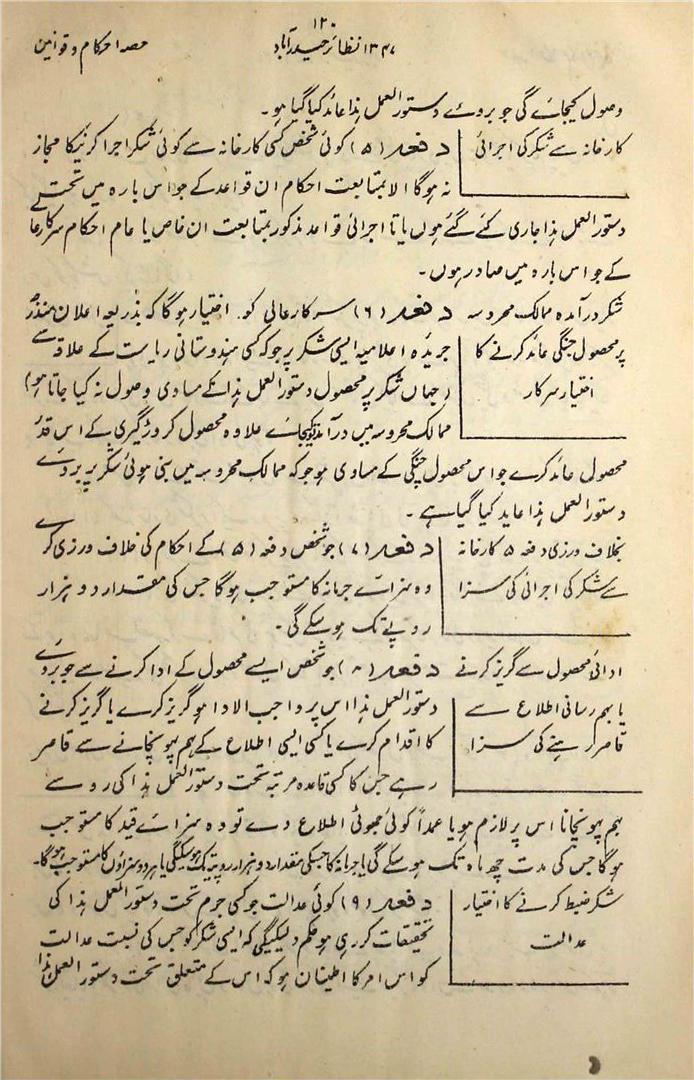 ۱۲۰
۱۳۴۷ نظائر حیدرآباد
حصہ احکام و قوانین
وصول کیجائے گی جو بروے دستور العمل ہذا عائد کیا گیا ہو۔
کارخانہ سے شکر کی اجرائی
دفعہ (۵) کوئی شخص کسی کارخانہ سے کوئی شکر اجرا کرنیکا مجاز
نہ ہوگا الا بمتابعت احکام ان قواعد کے جو اس بارہ میں تحت
دستور العمل ہذا جاری کئے گئے ہوں یا تا اجرائی قواعد مذکور بمتابعت ان خاص یا عام احکام سرکار عا
کے جو اس بارہ میں صادر ہوں۔
شکر درآمدہ ممالک محروسہ
پر محصول چنگی عائد کرنے کا
اختیار سرکار
دفعہ (۶) سرکار عالی کو اختیار ہوگا کہ بذریعہ اعلان مندرجہ
جریدہ اعلامیہ ایسی شکر پر جو کہ کسی ہندوستانی ریاست کے علاقہ سے
(جہاں شکر پر محصول دستور العمل ہذا کے مساوی وصول نہ کیا جاتا ہو)
ممالک محروسہ میں درآمد کیجائے علاوہ محصول کروڑگیری کے اس قدر
محصول عائد کرے جو اس محصول چنگی کے مساوی ہو جو کہ ممالک محروسہ میں بنی ہوئی شکر پر بروے
دستور العمل ہذا عاید کیا گیا ہے۔
بخلاف ورزی دفعہ ۵ کارخانہ
سے شکر کی اجرائی کی سزا
دفعہ (۷) جو شخص دفعہ (۵) کے احکام کی خلاف ورزی کرے
وہ سزائے جرمانہ کا مستوجب ہوگا جس کی مقدار دو ہزار
روپے تک ہو سکے گی۔
ادائی محصول سے گریز کرنے
یا بہم رسانی اطلاع سے
قاصر رہنے کی سزا
دفعہ (۸) جو شخص ایسے محصول کے ادا کرنے سے جو بروے
دستور العمل ہذا اس پر واجب الادا ہو گریز کرے یا گریز کرنے
کا اقدام کرے یا کسی ایسی اطلاع کے بہم پہونچانے سے قاصر
رہے جس کا کسی قاعدہ مرتبہ تحت دستور العمل ہذا کی رو سے
بہم پہونچانا اس پر لازم ہو یا عمداً کوئی جھوٹی اطلاع دے تو وہ سزائے قید کا مستوجب
ہوگا جس کی مدت چھ ماہ تک ہو سکے گی یا جرمانہ کا جسکی مقدار دو ہزار روپیہ تک ہوسکیگی یا ہر دو سزاؤں کا مستوجب ہوگا۔
شکر ضبط کرنے کا اختیار
عدالت
دفعہ (۹) کوئی عدالت جو کسی جرم تحت دستور العمل ہذا کی
تحقیقات کر رہی ہو حکم دیسکیگی کہ ایسی شکر کو جس کی نسبت عدالت
کو اس امر کا اطینان ہو کہ اس کے متعلق تحت دستور العمل ہذا